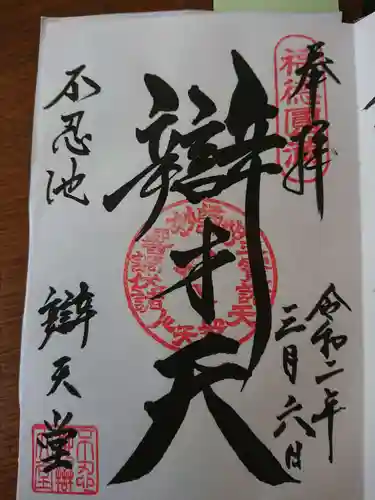 奉拝
福徳圓満
令和二年
三月六日
辯才天
不忍池
辯天堂